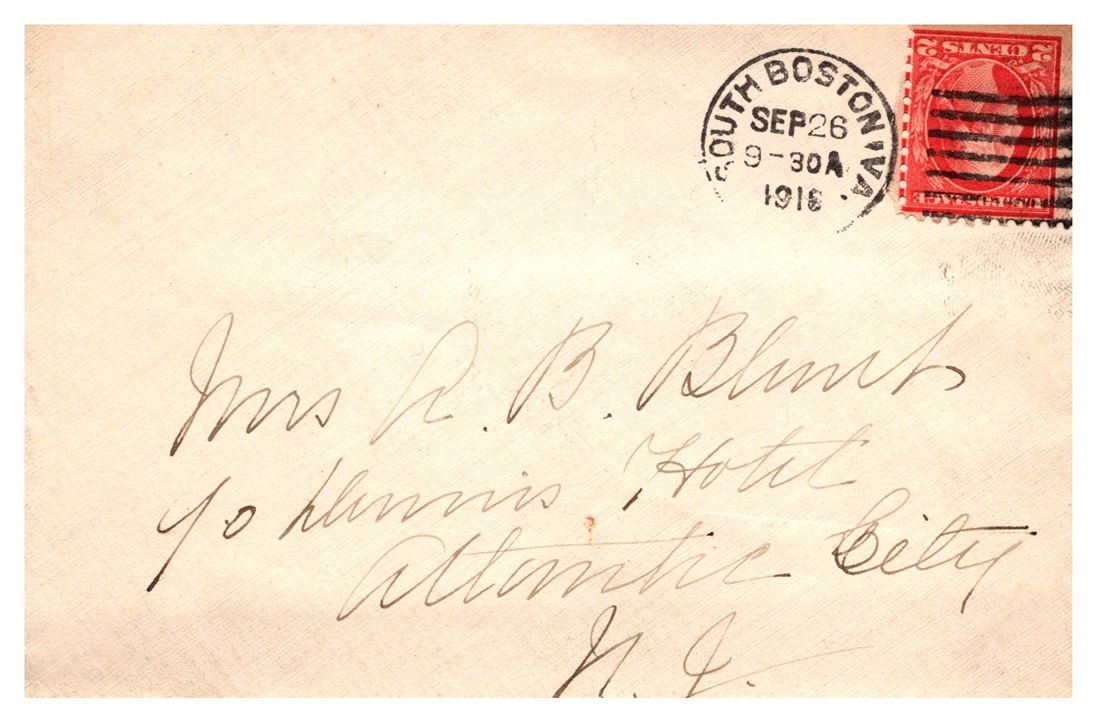 SOUTH BOSTON, VA.
SEP 26
9-30A
1918
2 CENTS 2
U.S. POSTAGE
Mrs R. B. Blunt
c/o Dennis Hotel
Atlantic City
N. J.